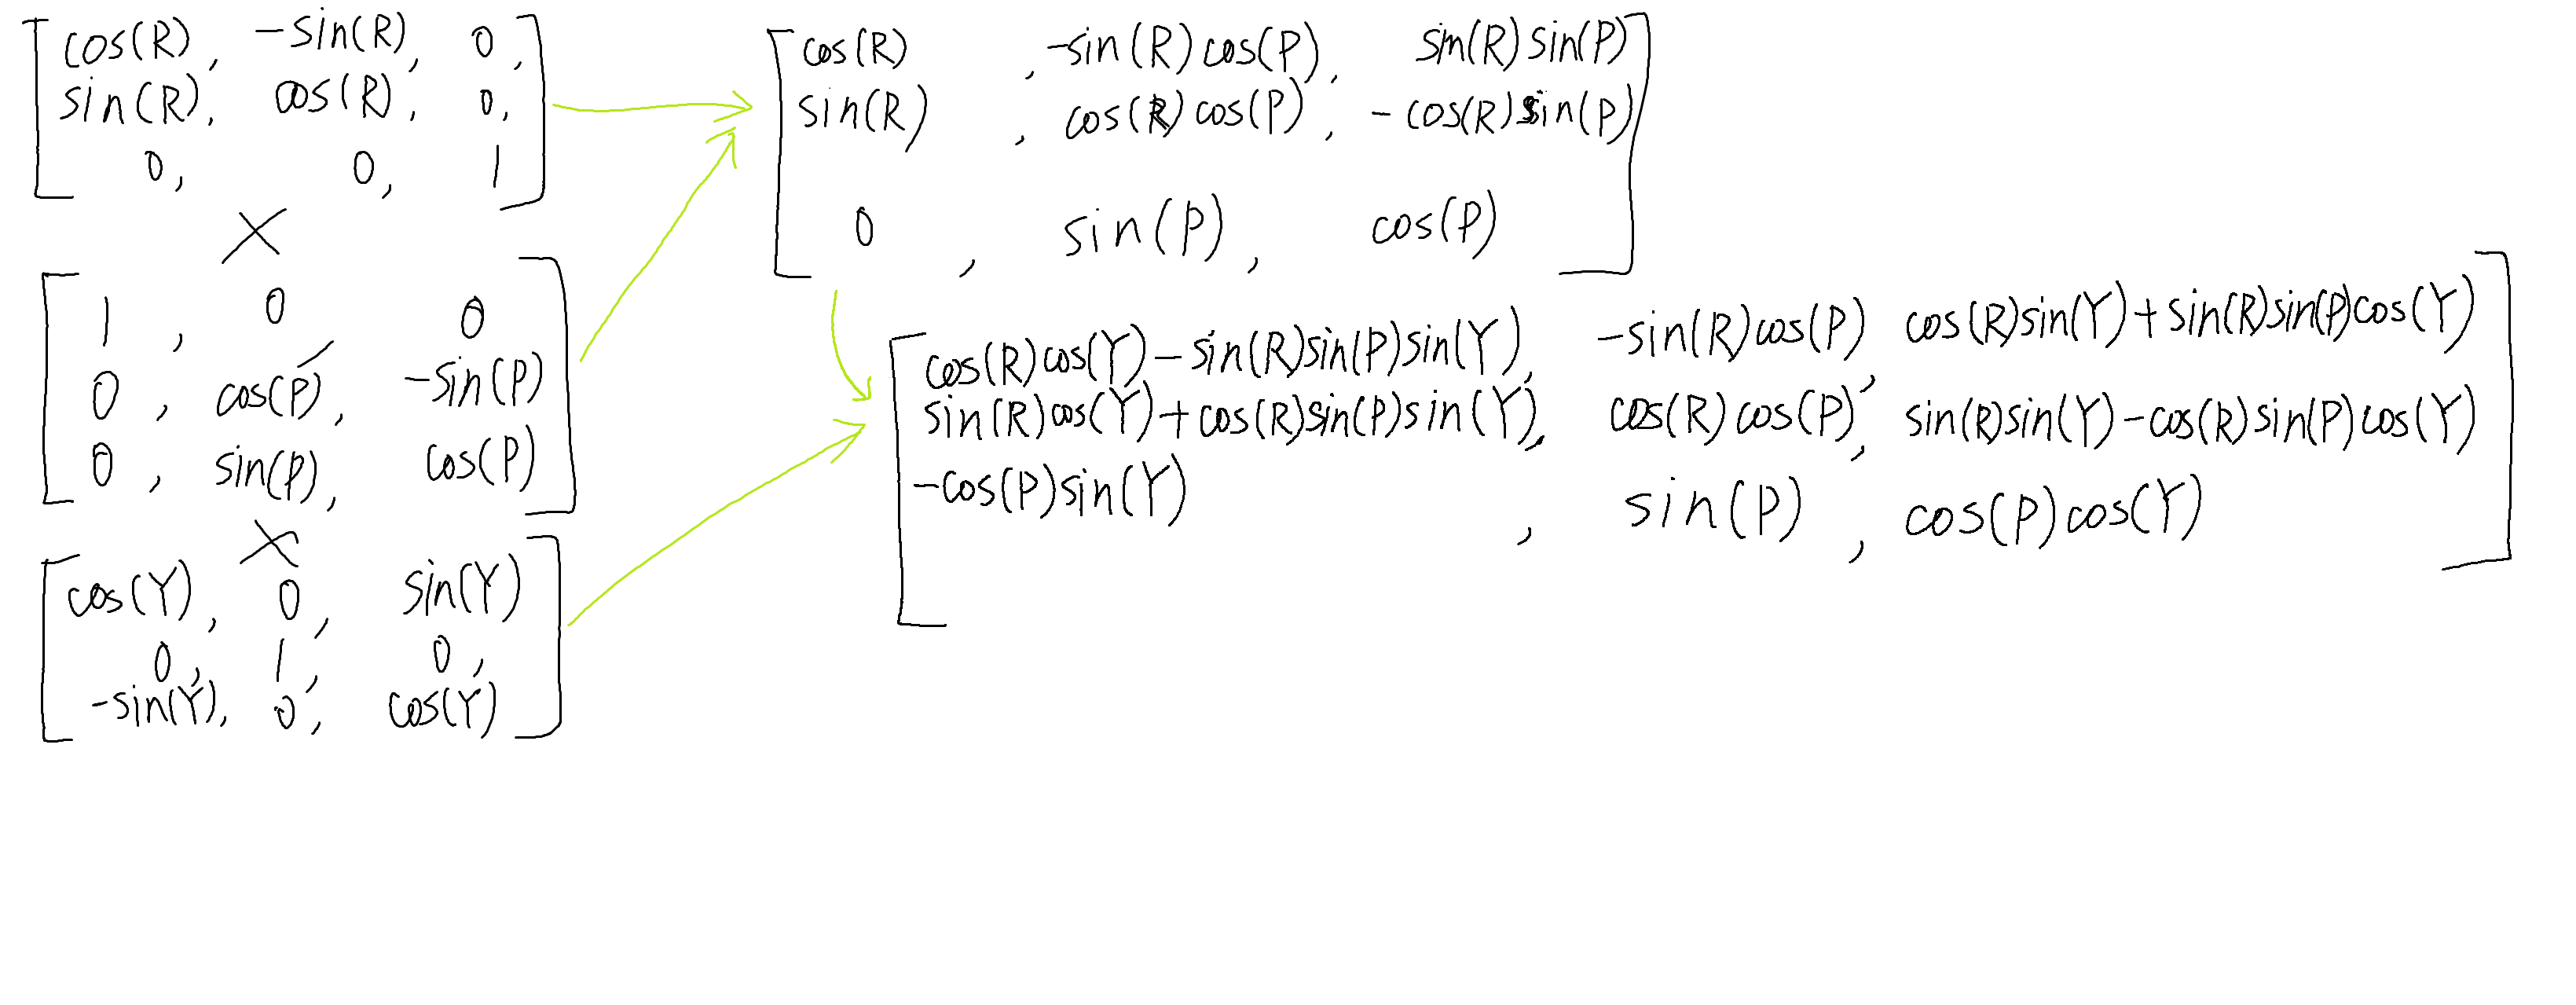 cos(R), -sin(R), 0,
sin(R), cos(R), 0,
0, 0, 1
×
1, 0 0
0, cos(P), -sin(P)
0, sin(P), cos(P)
×
cos(Y), 0, sin(Y)
0, 1, 0,
-sin(Y), 0, cos(Y)
cos(R), -sin(R)cos(P), sin(R)sin(P)
sin(R), cos(R)cos(P), -cos(R)sin(P)
0, sin(P), cos(P)
cos(R)cos(Y)-sin(R)sin(P)sin(Y), -sin(R)cos(P), cos(R)sin(Y)+sin(R)sin(P)cos(Y)
sin(R)cos(Y)+cos(R)sin(P)sin(Y), cos(R)cos(P), sin(R)sin(Y)-cos(R)sin(P)cos(Y)
-cos(P)sin(Y), sin(P), cos(P)cos(Y)